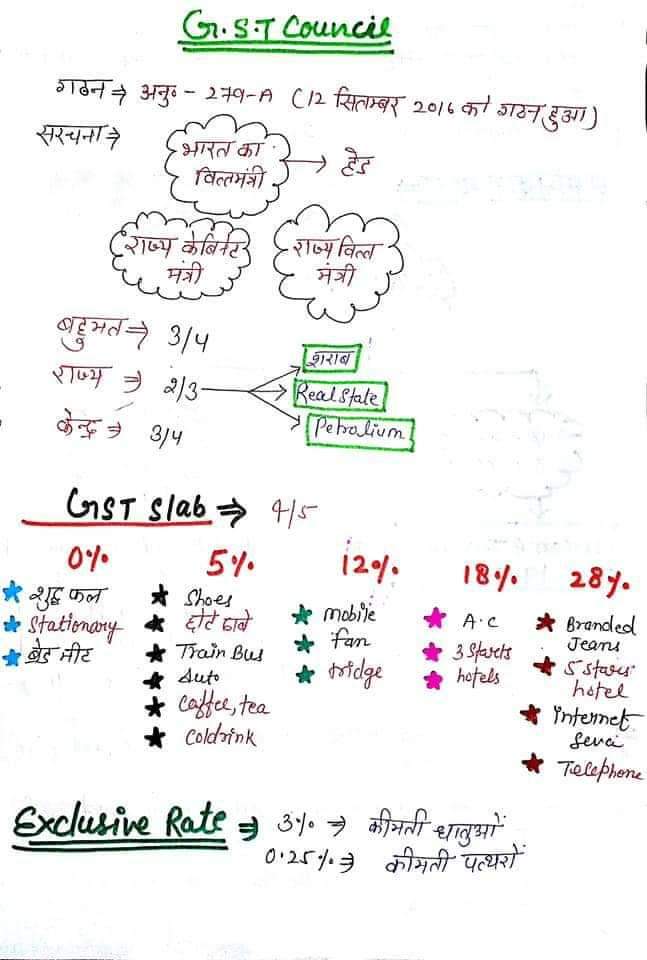 G.S.T Council
गठन ⇒ अनु॰ - 279-A (12 सितम्बर 2016 को गठन हुआ)
संरचना ⇒
भारत का
वित्तमंत्री → हेड
राज्य केबिनेट
मंत्री
राज्य वित्त
मंत्री
बहुमत ⇒ 3/4
राज्य ⇒ 2/3
शराब
Real State
Petrolium
केन्द्र ⇒ 3/4
GST Slab ⇒ 4/5
0%
शुद्ध फल
Stationary
ब्रेड मीट
5%
Shoes
छोटे ढाबे
Train Bus
Auto
Coffee, tea
Coldrink
12%
Mobile
Fan
fridge
18%
A.C
3 Starts
hotels
28%
Branded
Jeans
5 Stars
hotel
Internet
Seva
Telephone
Exclusive Rate ⇒ 3% ⇒ कीमती धातुओं
0.25% ⇒ कीमती पत्थरों